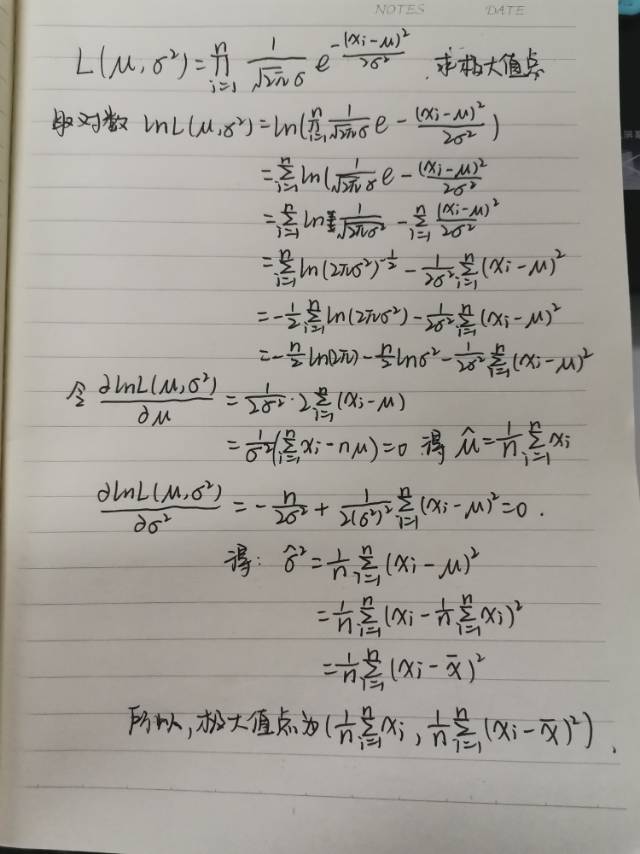 NOTES DATE
L(μ,σ²)=∏_{i=1}^{n} \frac{1}{\sqrt{2π}σ} e^{-\frac{(x_i-μ)²}{2σ²}} 求极大值点
取对数 lnL(μ,σ²)=ln(∏_{i=1}^{n} \frac{1}{\sqrt{2π}σ} e - \frac{(x_i-μ)²}{2σ²})
=∑_{i=1}^{n} ln(\frac{1}{\sqrt{2π}σ} e - \frac{(x_i-μ)²}{2σ²}
=∑_{i=1}^{n} ln \frac{1}{\sqrt{2πσ²}} - ∑_{i=1}^{n} \frac{(x_i-μ)²}{2σ²}
=∑_{i=1}^{n} ln(2πσ²)^{-\frac{1}{2}} - \frac{1}{2σ²} ∑_{i=1}^{n} (x_i-μ)²
=-\frac{1}{2} ∑_{i=1}^{n} ln(2πσ²) - \frac{1}{2σ²} ∑_{i=1}^{n} (x_i-μ)²
=-\frac{n}{2} ln(2π) - \frac{n}{2} lnσ² - \frac{1}{2σ²} ∑_{i=1}^{n} (x_i-μ)²
令 \frac{∂lnL(μ,σ²)}{∂μ} = \frac{1}{2σ²}·2∑_{i=1}^{n} (x_i-μ)
=\frac{1}{σ²}(∑_{i=1}^{n} x_i-nμ)=0 得 \hat{μ}=\frac{1}{n} ∑_{i=1}^{n} x_i
\frac{∂lnL(μ,σ²)}{∂σ²} = -\frac{n}{2σ²} + \frac{1}{2(σ²)²} ∑_{i=1}^{n} (x_i-μ)²=0.
得: \hat{σ}²=\frac{1}{n} ∑_{i=1}^{n} (x_i-μ)²
=\frac{1}{n} ∑_{i=1}^{n} (x_i-\frac{1}{n} ∑_{i=1}^{n} x_i)²
=\frac{1}{n} ∑_{i=1}^{n} (x_i-\bar{x})²
所以,极大值点为(\frac{1}{n} ∑_{i=1}^{n} x_i, \frac{1}{n} ∑_{i=1}^{n} (x_i-\bar{x})²).